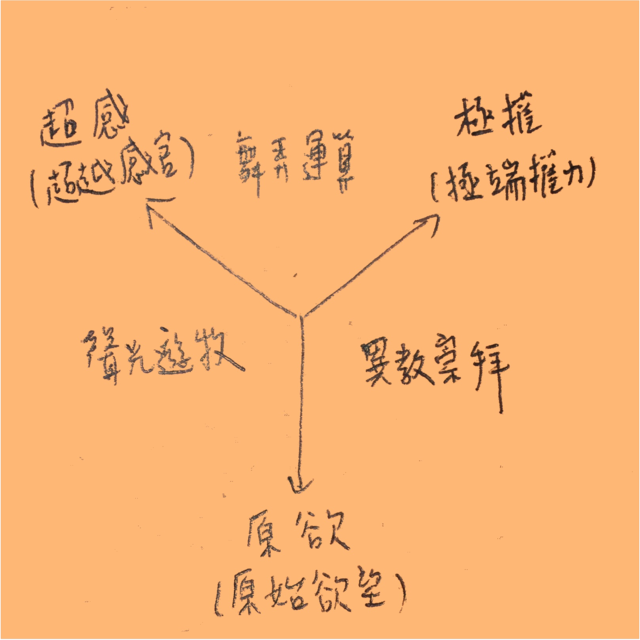 超感
(超越感官)
舞弄運算
極權
(極端權力)
聲光遊牧
異教崇拜
原欲
(原始欲望)